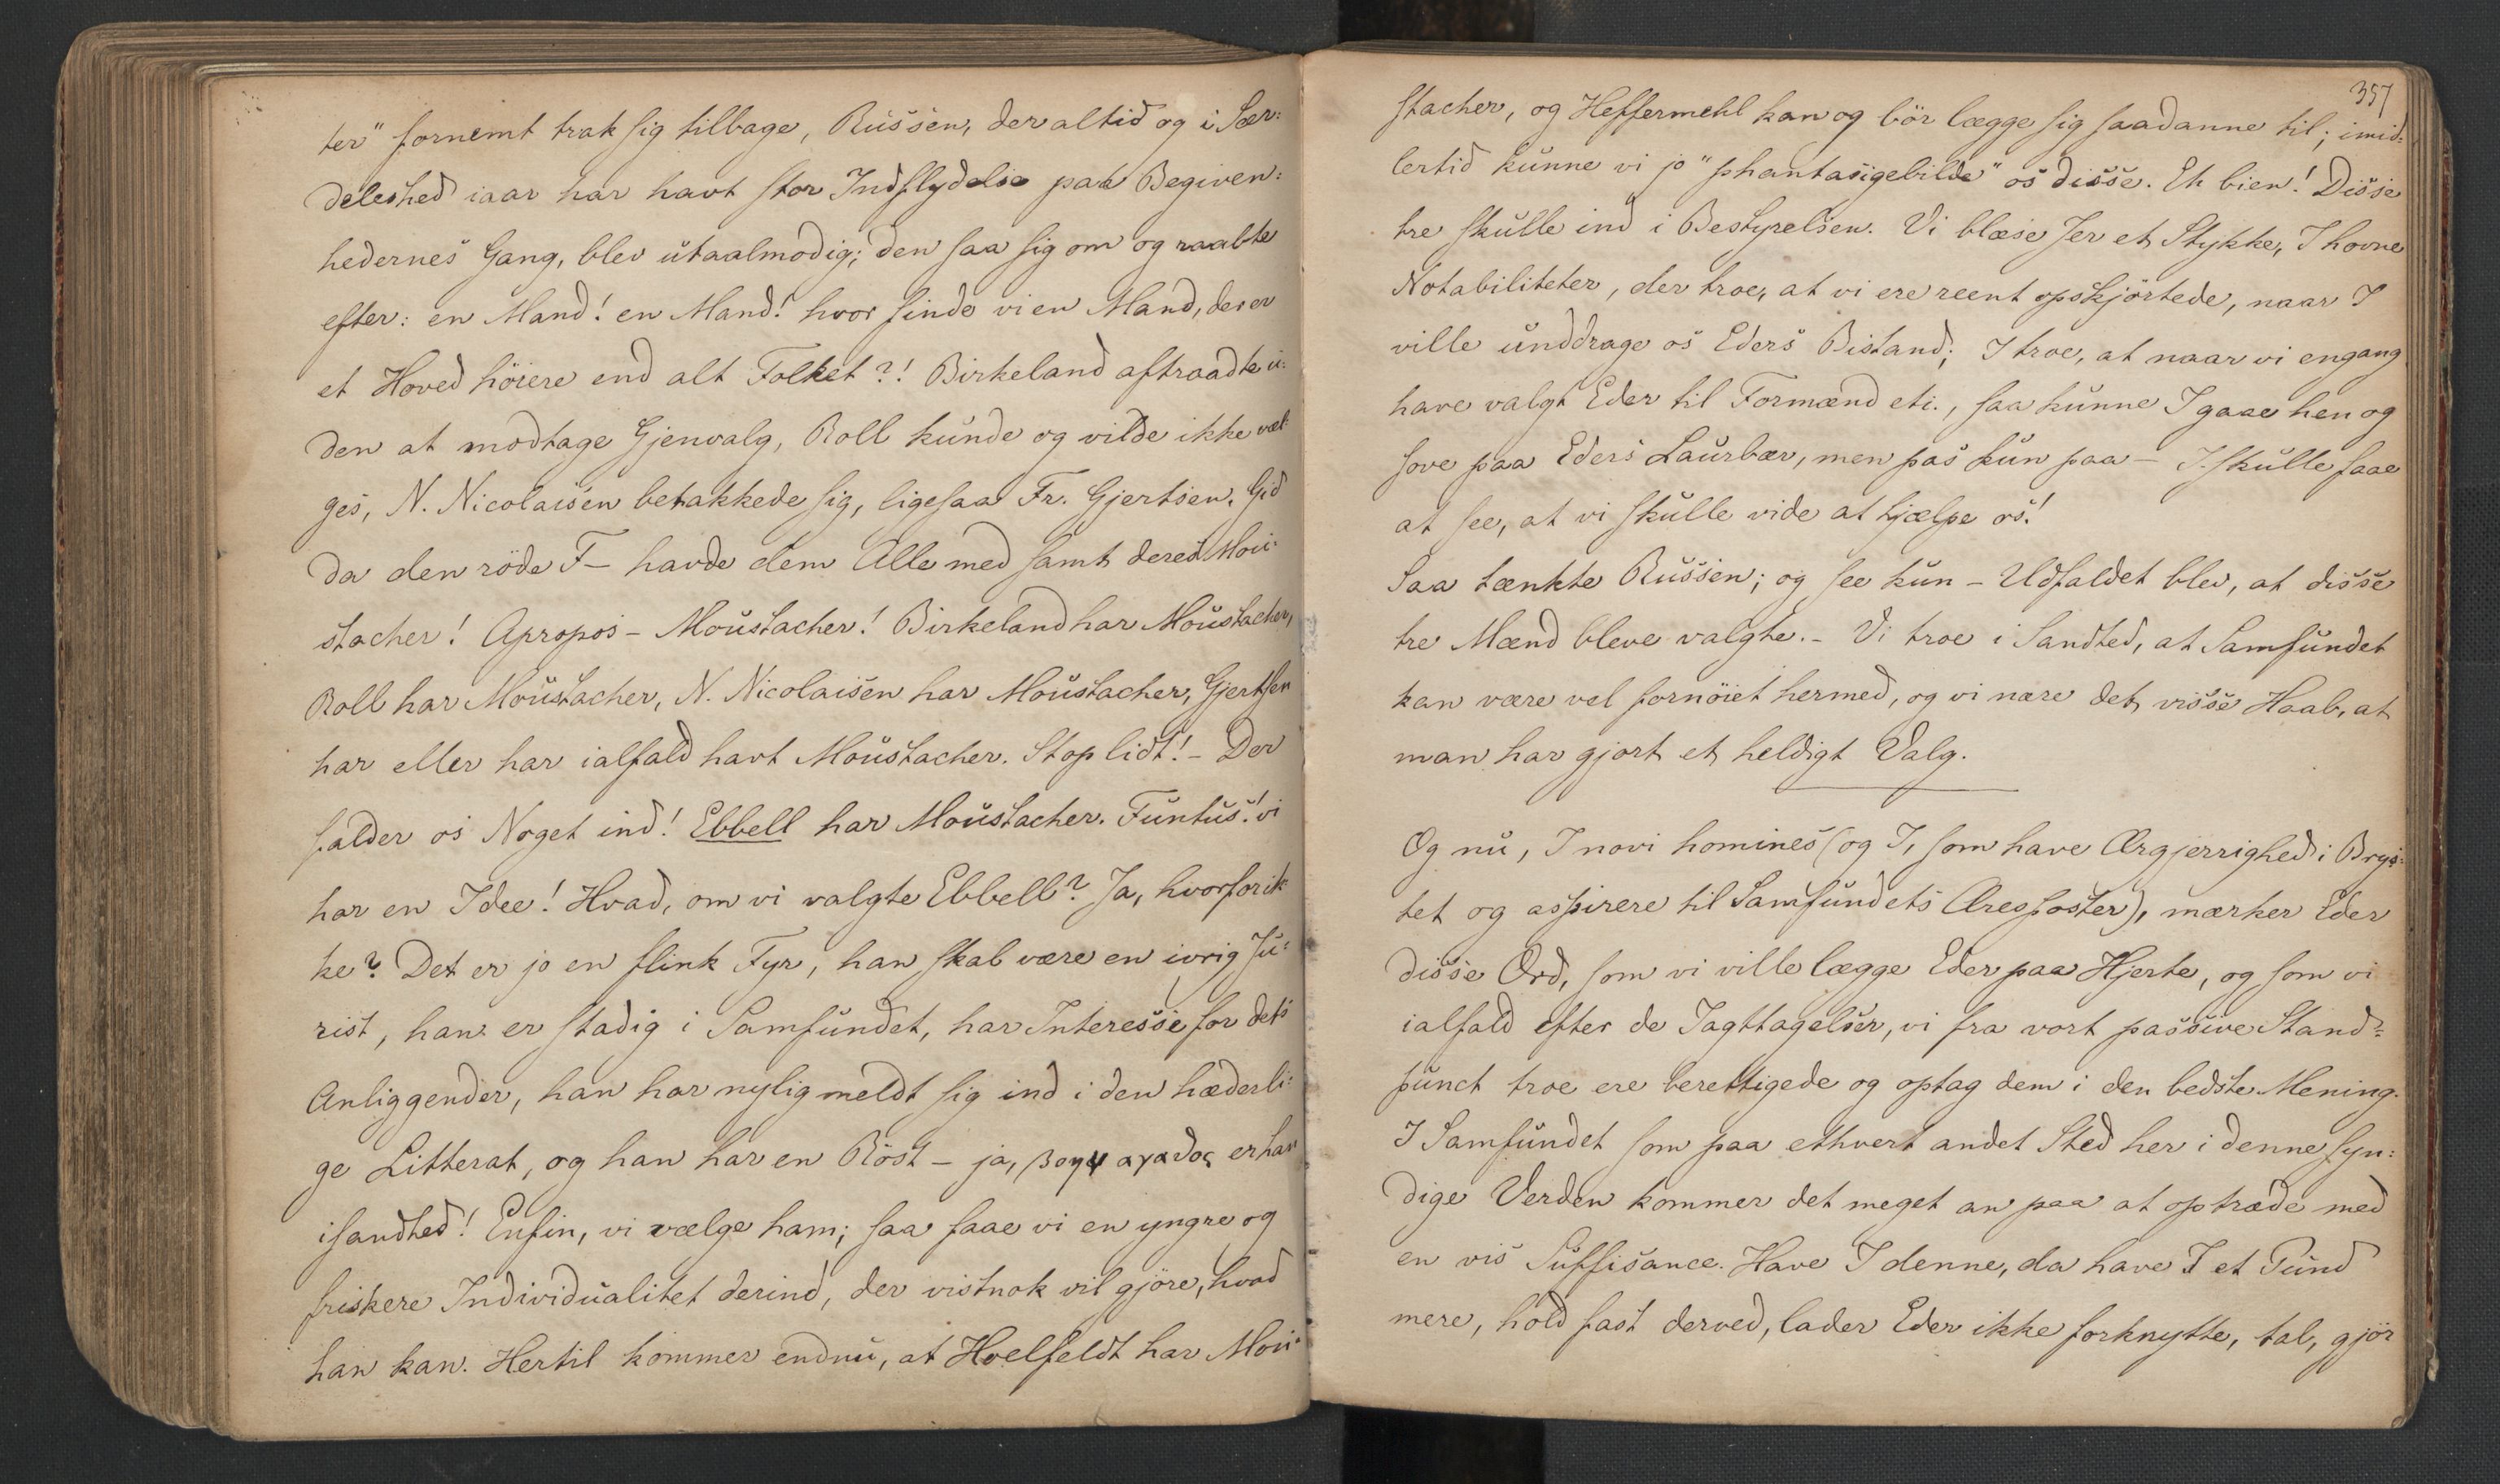 ter" fornemt trak sig tilbage, Russen, der altid og i Sær-
deleshed iaar har havt stor Indflydelse paa Begiven-
hedernes Gang, blev utaalmodig; den saa sig om og raabte
efter: en Mand! en Mand! hvor finde vi en Mand, der er
et Hoved höiere end alt Folket?! Birkeland aftraadte u-
den at modtage Gjenvalg, Roll kunde og vilde ikke væl-
ges, N. Nicolaisen betakkede sig, ligesaa Fr. Gjertsen. Gid
da den röde F— havde dem Alle med samt deres Mou-
stacher! Apropos - Moustacher! Birkeland har Moustacher,
Roll har Moustacher, N. Nicolaisen har Moustacher, Gjertsen
har eller har ialfald havt Moustacher. Stop lidt! - Der
falder os Noget ind! Ebbell har Moustacher. Funtus! vi
har en Idee! Hvad, om vi valgte Ebbell? Ja, hvorfor ik-
ke? Det er jo en flink Fyr, han skal være en ivrig Ju-
rist, han er stadig i Samfundet, har Interesse for dets
Anliggender, han har nylig meldt sig ind i den hæderli-
ge Litterat, og han har en Röst - ja, βοην αγαθος er han
isandhed! Enfin, vi vælge ham; saa faae vi en yngre og
friskere Individualitet derind, der vistnok vil gjöre, hvad
han kan. Hertil kommer endnu, at Hoelfeldt har Mou-
357
stacher, og Heffermehl kan og bör lægge sig saadanne til; imid-
lertid kunne vi jo "phantasigebilde" os disse. Eh bien! Disse
tre skulle ind i Bestyrelsen. Vi blæse Jer et Stykke, I hovne
Notabiliteter, der troe, at vi ere reent opskjörtede, naar I
ville unddrage os Eders Bistand; I troe, at naar vi engang
have valgt Eder til Formænd etc., saa kunne I gaae hen og
sove paa Eders Laurbær, men pas kun paa - I skulle faae
at see, at vi skulle vide at hjælpe os!
Saa tænkte Russen; og see kun - Udfaldet blev, at disse
tre Mænd bleve valgte. - Vi troe i Sandhed, at Samfundet
kan være vel fornöiet hermed, og vi nære det visse Haab, at
man har gjort et heldigt Valg.
Og nu, I novi homines (og I, som have Ærgjerrighed i Brys-
tet og aspirere til Samfundets Æresposter), mærker Eder
disse Ord, som vi ville lægge Eder paa Hjerte, og som vi
ialfald efter de Iagttagelser, vi fra vort passive Stand-
punct troe ere berettigede og optag dem i den bedste Mening.
I Samfundet som paa ethvert andet Sted her i denne syn-
dige Verden kommer det meget an paa at optræde med
en vis Suffisance. Have I denne, da have I et Pund
mere, hold fast derved, lader Eder ikke forknytte, tal, gjör